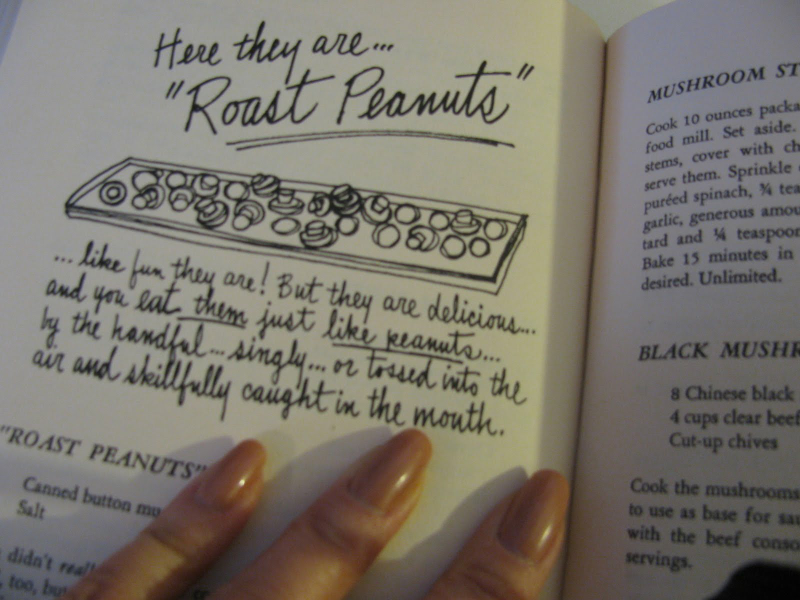 Here they are...
"Roast Peanuts"
... like fun they are! But they are delicious...
and you eat them just like peanuts...
by the handful... singly... or tossed into the
air and skillfully caught in the mouth.
"ROAST PEANUTS"
Canned button
Salt
didn't
, too,
MUSHROOM
Cook 10 ounces
food mill. Set aside.
stems, cover with
serve them. Sprinkle
puréed spinach, ¾
garlic, generous
and ¼ teaspoon
Bake 15 minutes in
desired. Unlimited.
BLACK
8 Chinese black
4 cups clear
Cut-up chives
Cook the mushrooms
to use as base for
with the beef
servings.